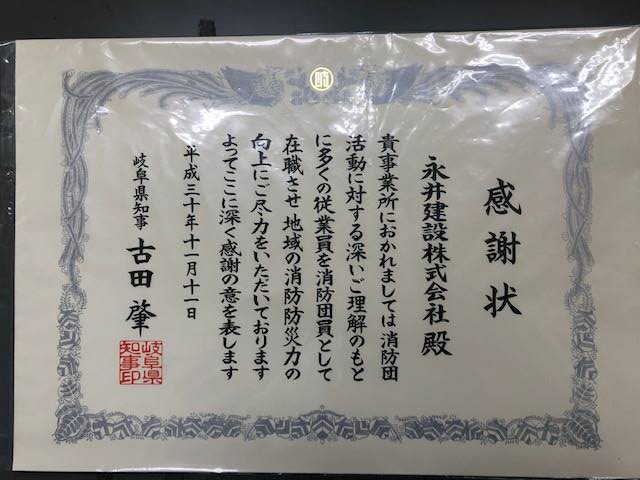 感謝状
永井建設株式会社 殿
貴事業所におかれましては 消防団
活動に対する深いご理解のもと
に多くの従業員を消防団員として
在職させ 地域の消防防災力の
向上にご尽力をいただいております
よってここに深く感謝の意を表します
平成三十年十一月十一日
岐阜県知事 古田 肇
岐阜県
知事印